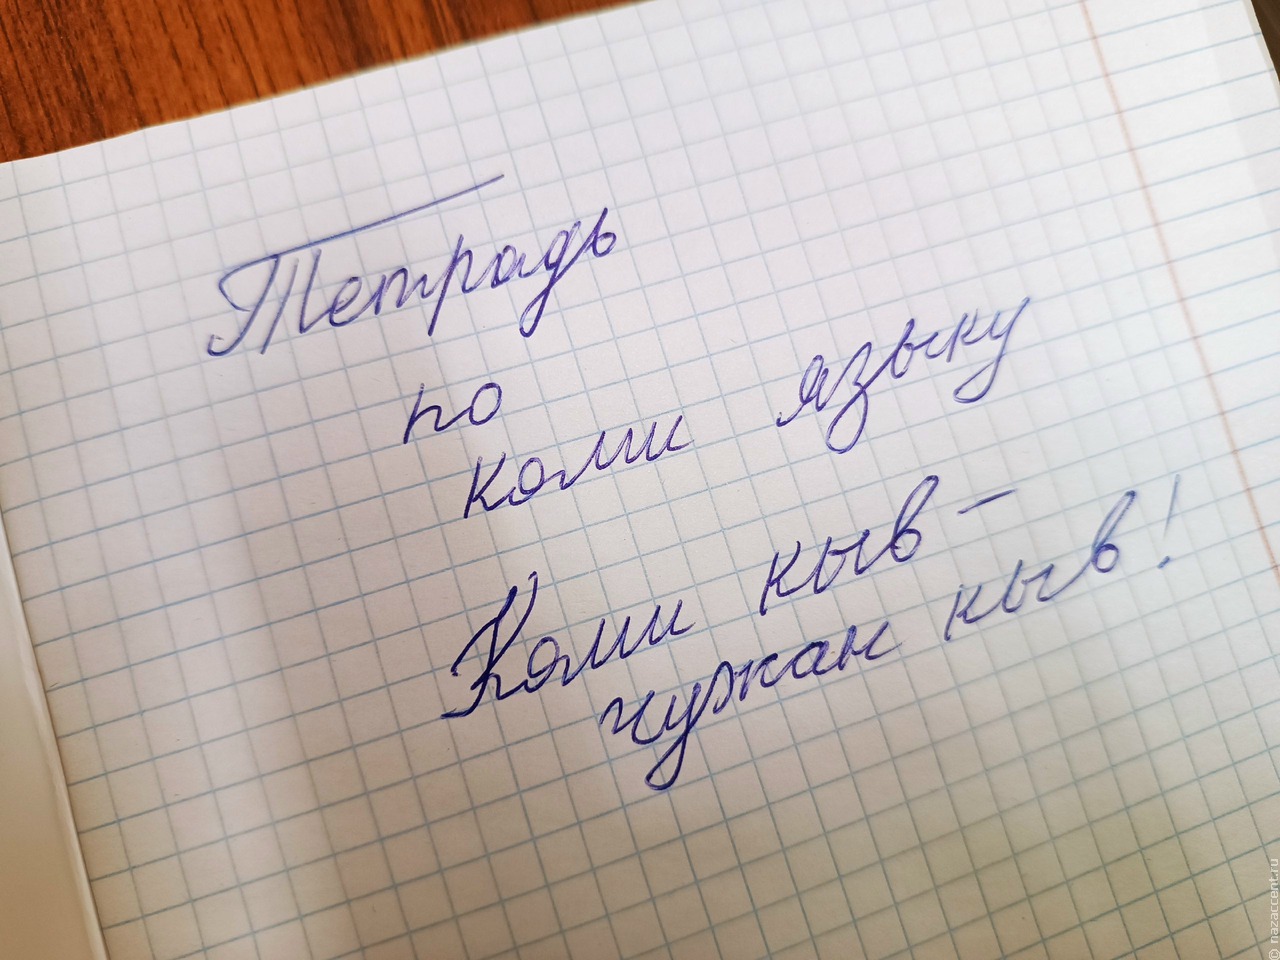 Тетрадь
по
коми языку
Коми кыв –
чужан кыв!
© nazaccent.ru